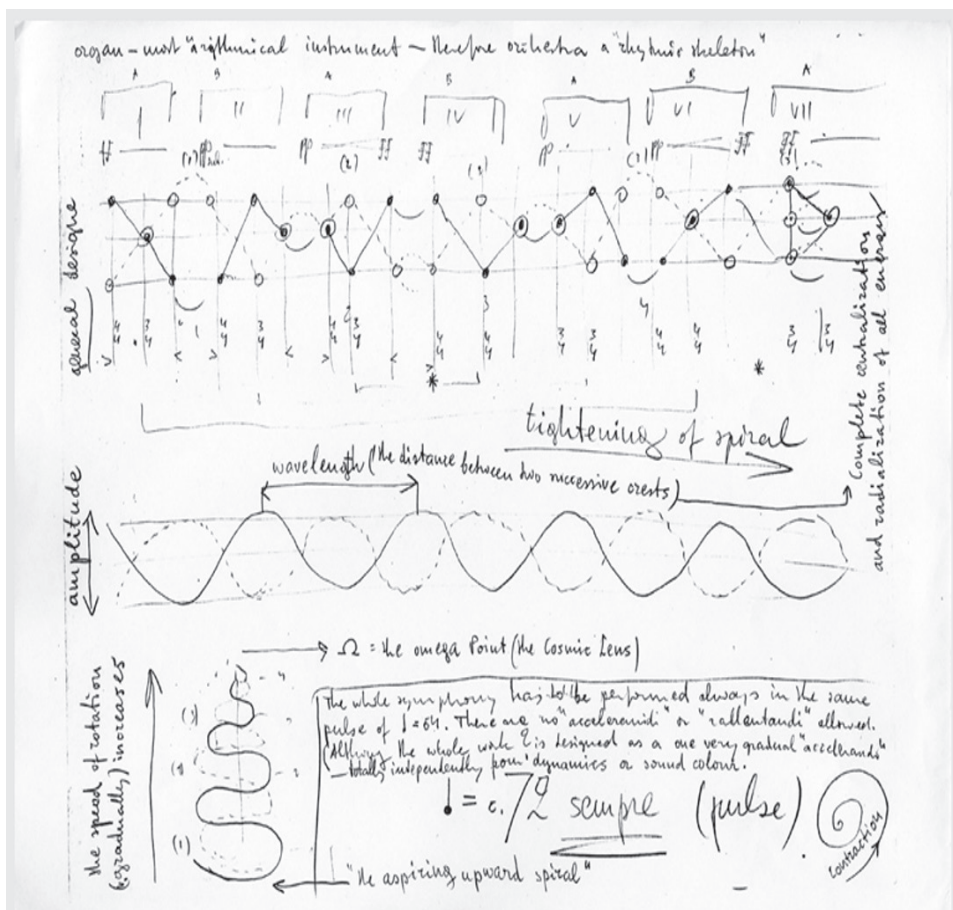 organ – most "arythmical instrument – therefore orchestra a "rhythmic skeleton"
A B A B A B A
I II III IV V VI VII
ff (1) pp pp (2) ff ff (3) pp (3) pp ff ff
general designe
1 2 3 4
* *
tightening of spiral
Complete centralization
and radialization of all energy
wavelength (the distance between two successive crests)
amplitude
Ω = the omega Point (the Cosmic Lens)
the speed of rotation
(gradually) increases
(3)
(2)
(1)
The whole symphony has to be performed always in the same
pulse of ♩=64. There are no "accelerandi" or "rallentandi" allowed.
(Although the whole work is designed as a one very gradual "accelerando"
– totally independently from dynamics or sound colour.
♩ = c. 72 sempre (pulse)
contraction
"the aspiring upward spiral"